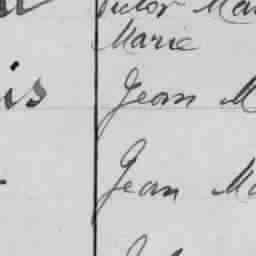 Victor Mar
Marie
is
Jean M
Jean Ma